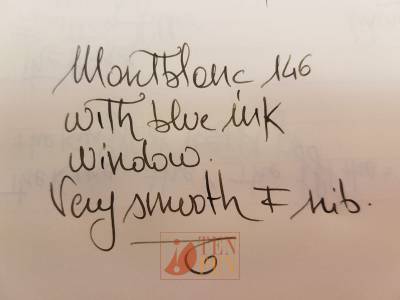 Montblanc 146
with blue ink
window.
Very smooth F nib.